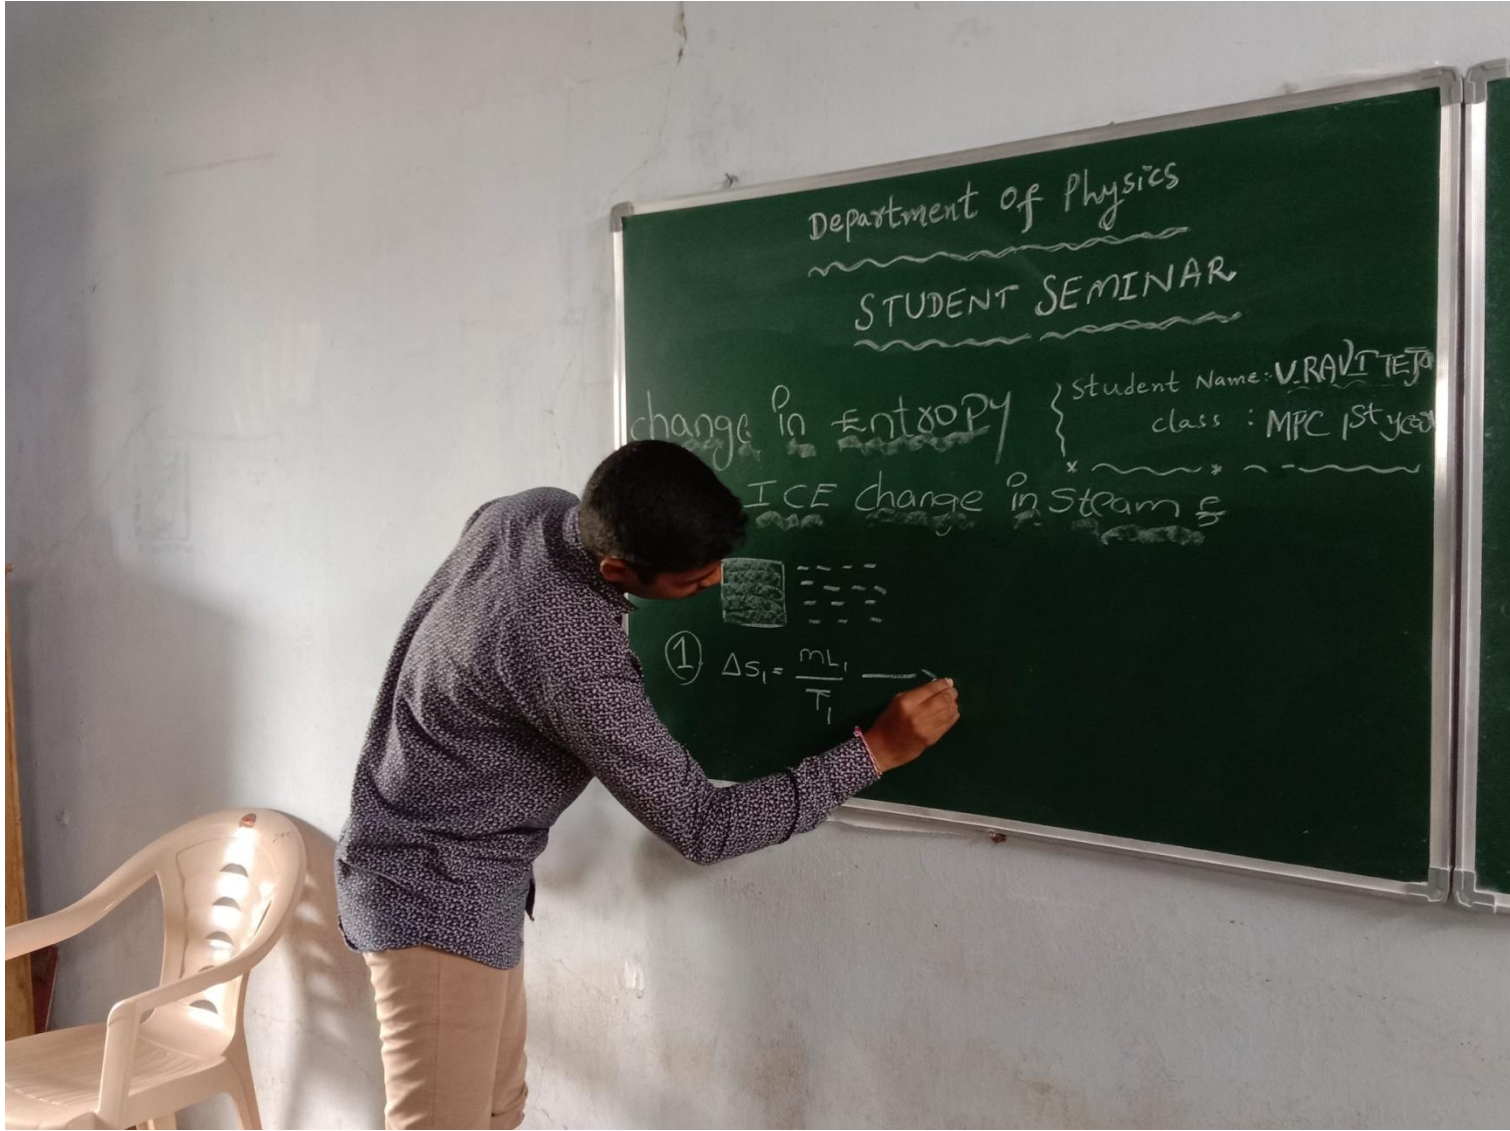 Department of Physics
STUDENT SEMINAR
change in Entropy
Student Name:- V.RAVI TEJA
class : MPC 1st year
ICE change in steam
① ΔS₁ = mL₁/T₁ →